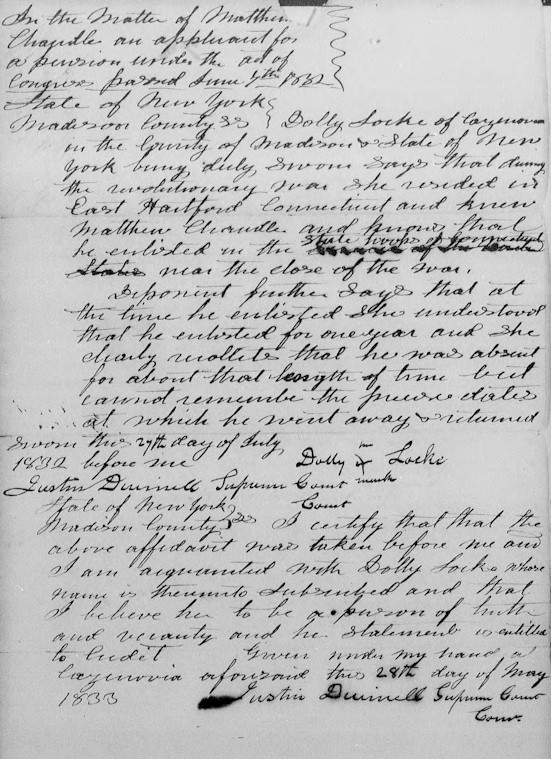 In the Matter of Matthew
Chandle an applicant for
a pension under the act of
Congress passed June 7th 1832
State of New York
Madison County ss Dolly Locke of Cazenovia
in the County of Madison & State of New
York being duly sworn says that during
the revolutionary war she resided in
East Hartford Connecticut and knew
Matthew Chandle and knows that
he enlisted in the state troops of Connecticut
near the close of the war.
Deponent further says that at
the time he enlisted she understood
that he enlisted for one year and she
clearly recollects that he was absent
for about that length of time but
cannot remember the precise dates
at which he went away & returned
Sworn this 27th day of July
1832 before me Dolly X Locke
mark
Justin Dwinell Supreme Court
Court
State of New York
Madison County ss I certify that that the
above affidavit was taken before me and
I am acquainted with Dolly Locke whose
name is thereunto subscribed and that
I believe her to be a person of truth
and veracity and he statement is entitled
to credit Given under my hand at
Cazenovia aforesaid this 28th day of May
1833 Justin Dwinell Supreme Court
Comr.